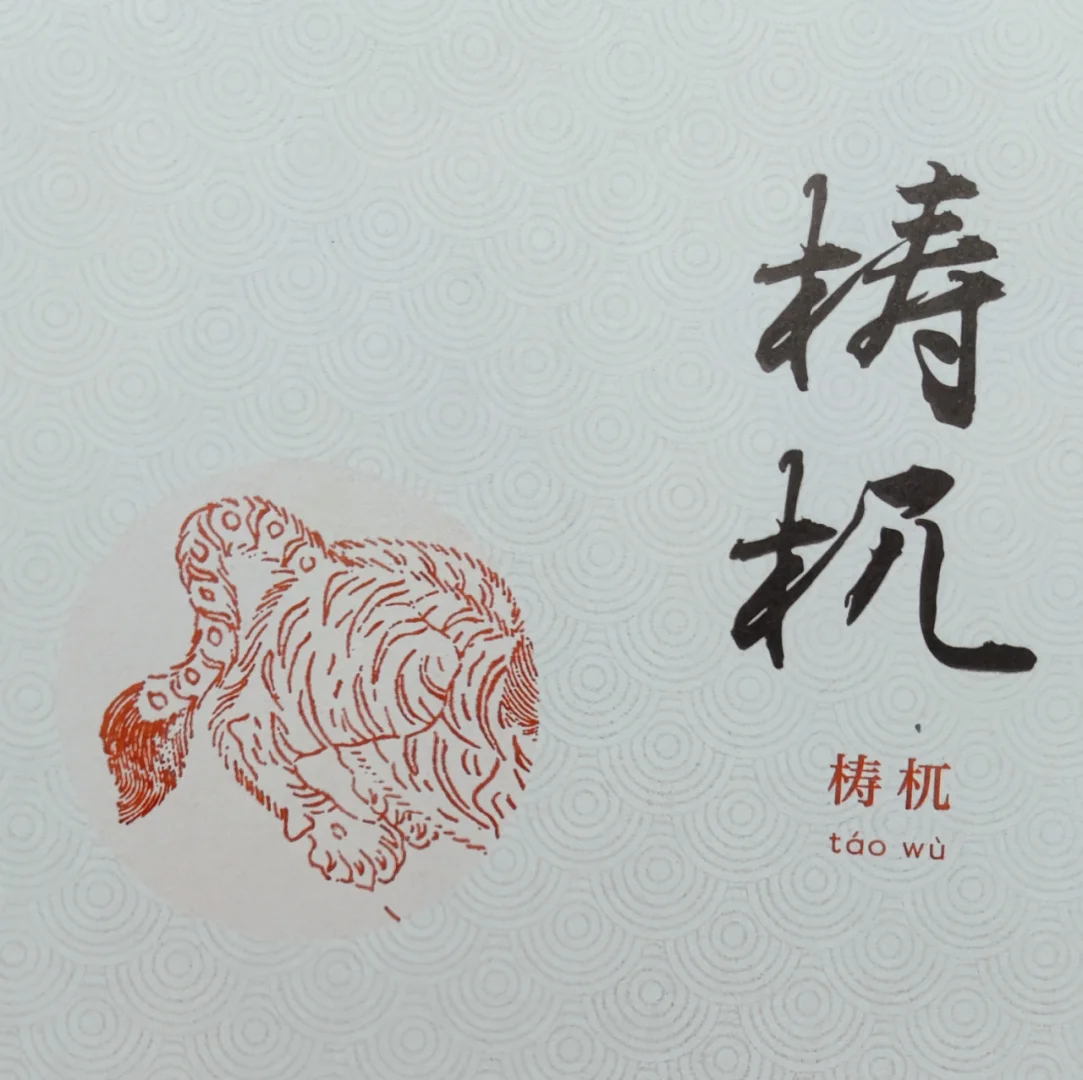 梼杌
梼杌
táo wù